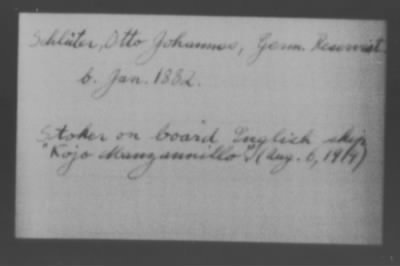 Schlüter, Otto Johannes, Germ. Reservist
b. Jan. 1882.
Stoker on board English ship
"Kojo Manzannillo" (Aug. 6, 1914)